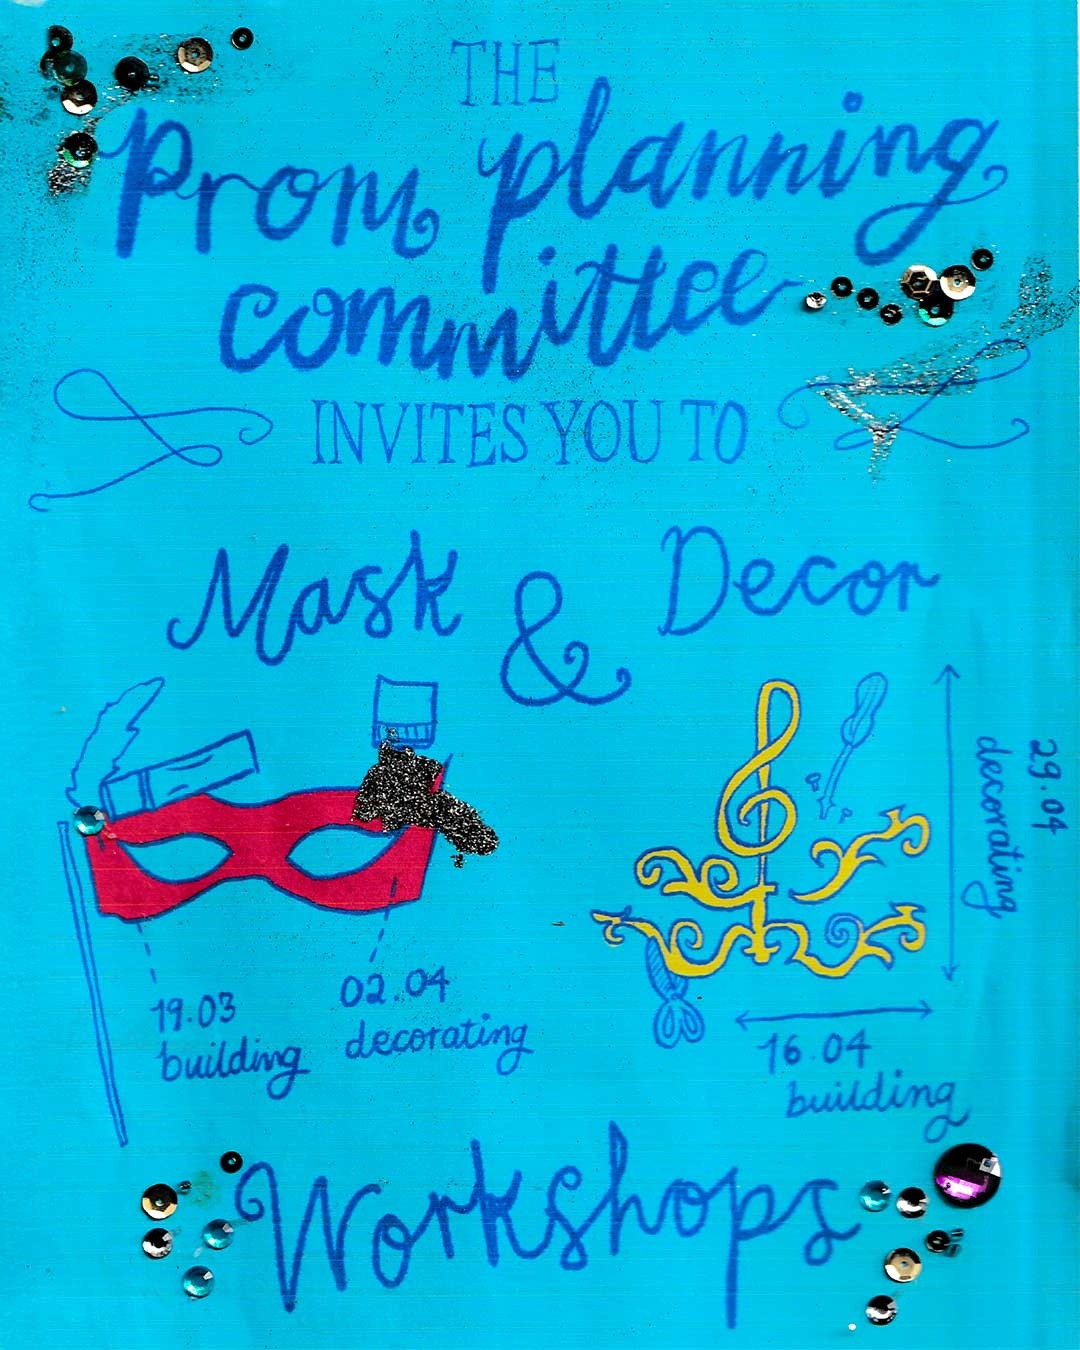 THE
Prom planning
committee
INVITES YOU TO
Mask & Decor
19.03
building
02.04
decorating
16.04
building
29.04
decorating
Workshops